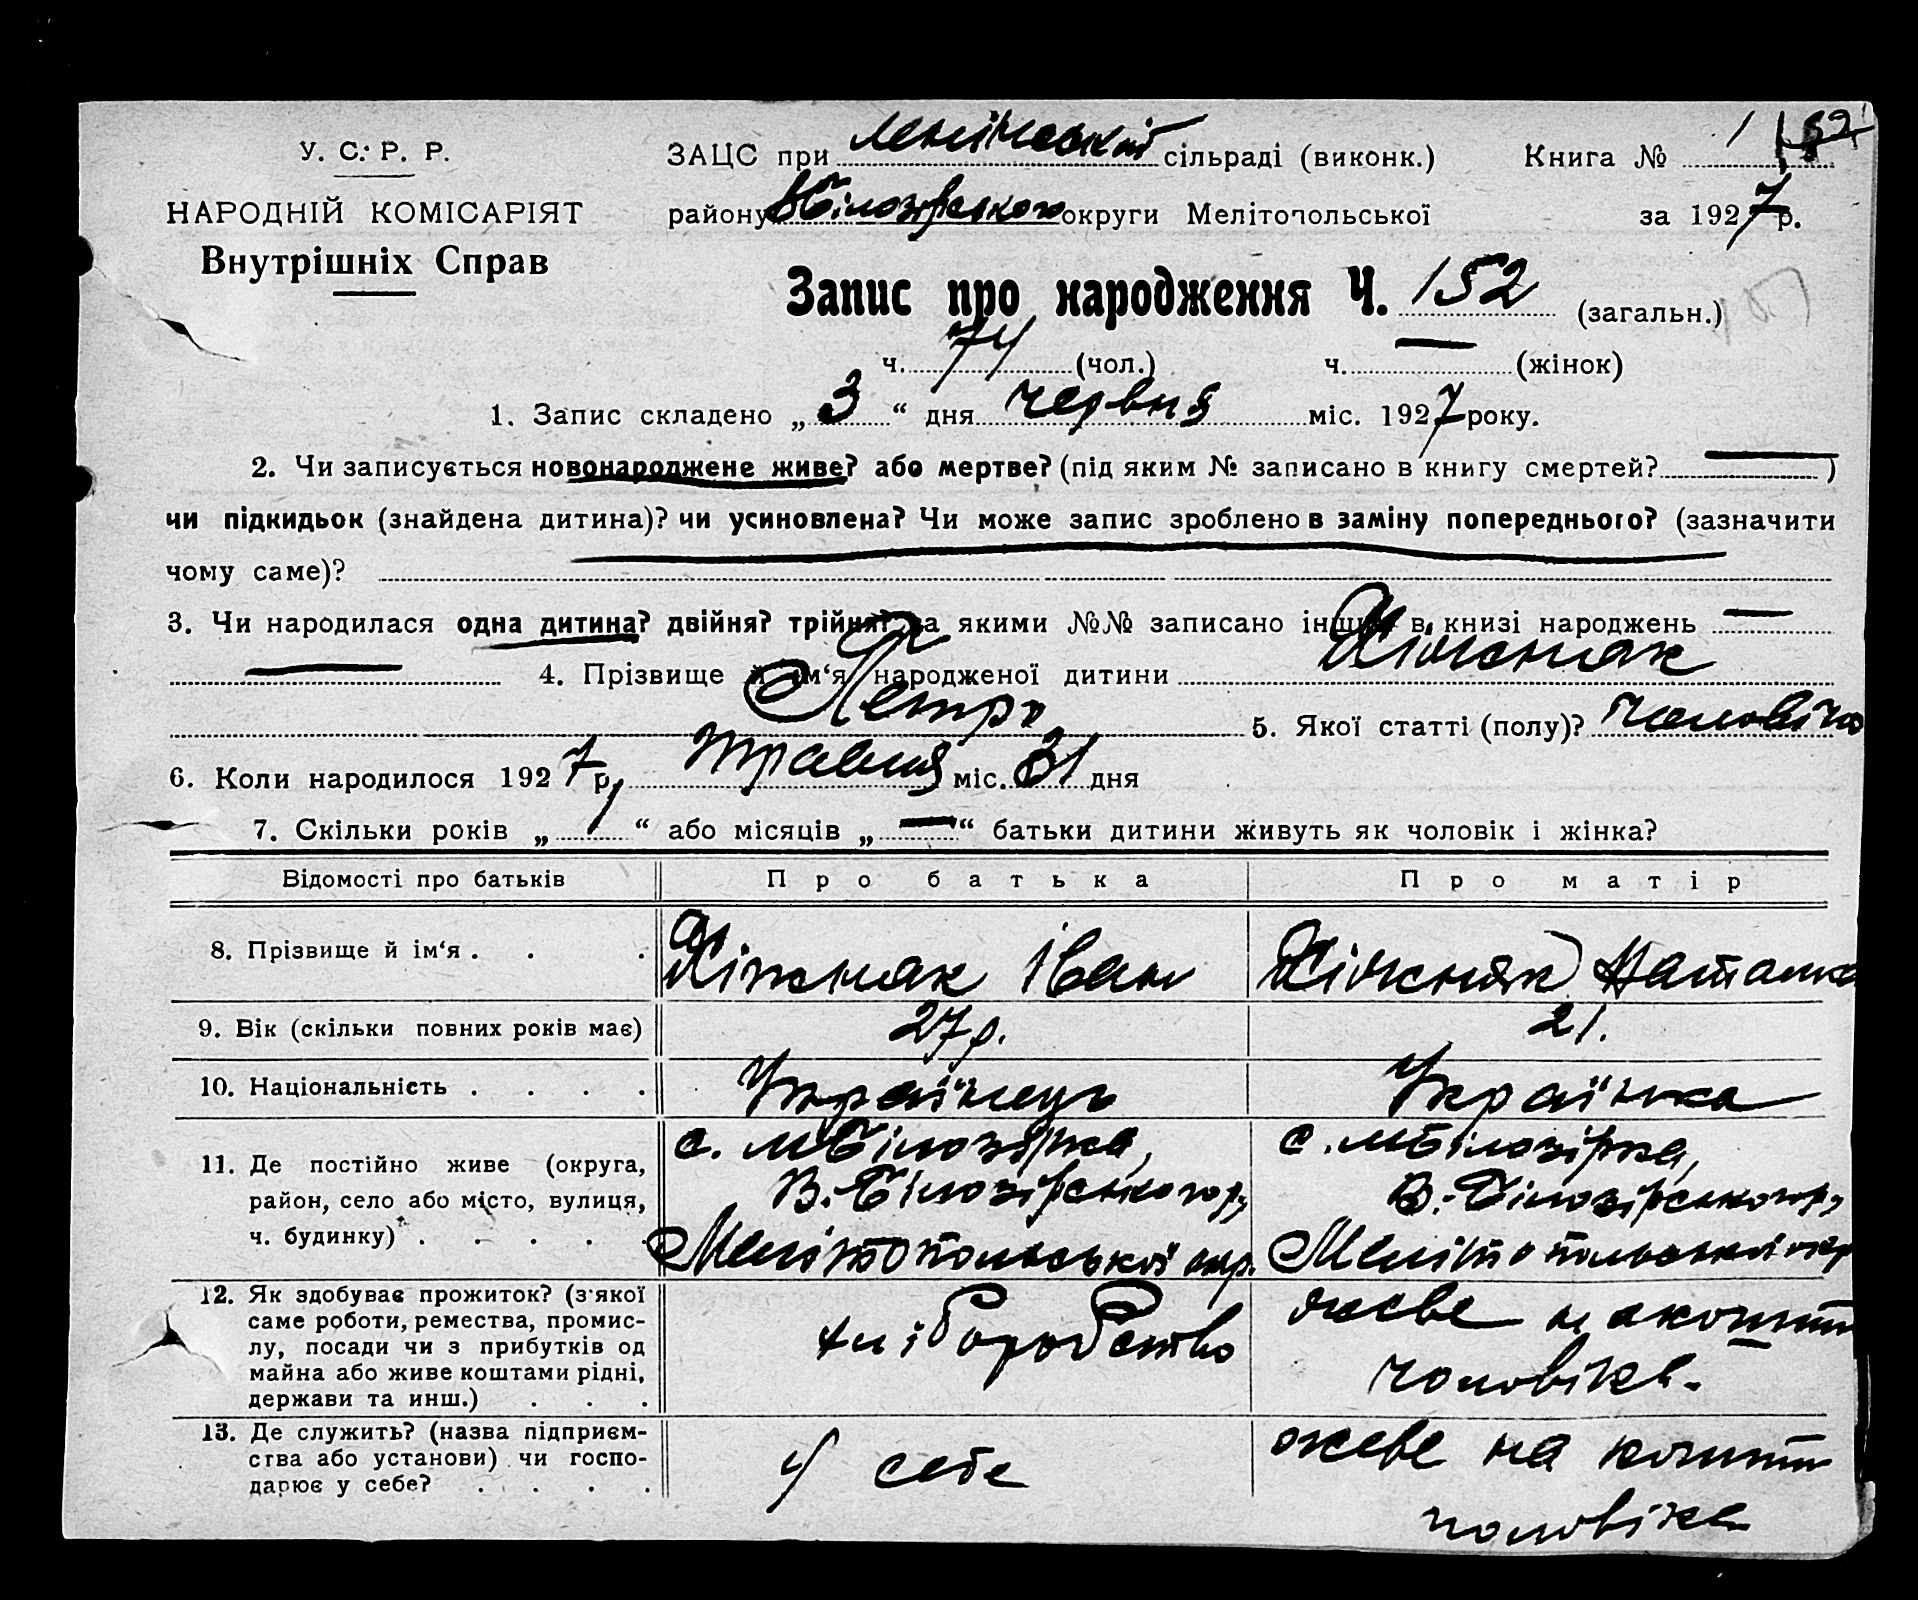 У. С. Р. Р.
НАРОДНІЙ КОМІСАРІЯТ
Внутрішніх Справ
ЗАЦС при Ленінській сільраді (виконк.) Книга № 1
району Білозірського округи Мелітопольської за 1927 р.
Запис про народження Ч. 152 (загальн.)
ч. 74 (чол.) ч. — (жінок)
1. Запис складено „ 3 “ дня червня міс. 1927 року.
2. Чи записується новонароджене живе? або мертве? (під яким № записано в книгу смертей? — )
чи підкидьок (знайдена дитина)? чи усиновлена? Чи може запис зроблено в заміну попереднього? (зазначити
чому саме)?
3. Чи народилася одна дитина? двійня? трійня? за якими №№ записано інших в книзі народжень —
— 4. Прізвище й ім‘я народженої дитини Кіжняк
Петро 5. Якої статті (полу)? чоловічо
6. Коли народилося 1927 р. травня міс. 31 дня
7. Скільки років „ 1 “ або місяців „ — “ батьки дитини живуть як чоловік і жінка?
Відомості про батьків Про батька Про матір
8. Прізвище й ім‘я . . . Кіжняк Іван Кіжняк Наталка
9. Вік (скільки повних років має) 27 р. 21.
10. Національність . . . . Українець Українка
11. Де постійно живе (округа, район, село або місто, вулиця, ч. будинку) . . . . .
с. МБілозірка, с. МБілозірка,
В.-Білозірського р, В.-Білозірського р,
Мелітопольської окр. Мелітопольської окр
12. Як здобуває прожиток? (з'якої
саме роботи, ремества, промис-
лу, посади чи з прибутків од
майна або живе коштами рідні,
держави та инш.) . . .
хліборобство
живе на кошти
чоловіка.
13. Де служить? (назва підприєм-
ства або установи) чи госпо-
дарює у себе? . . . .
у себе
живе на кошти
чоловіка